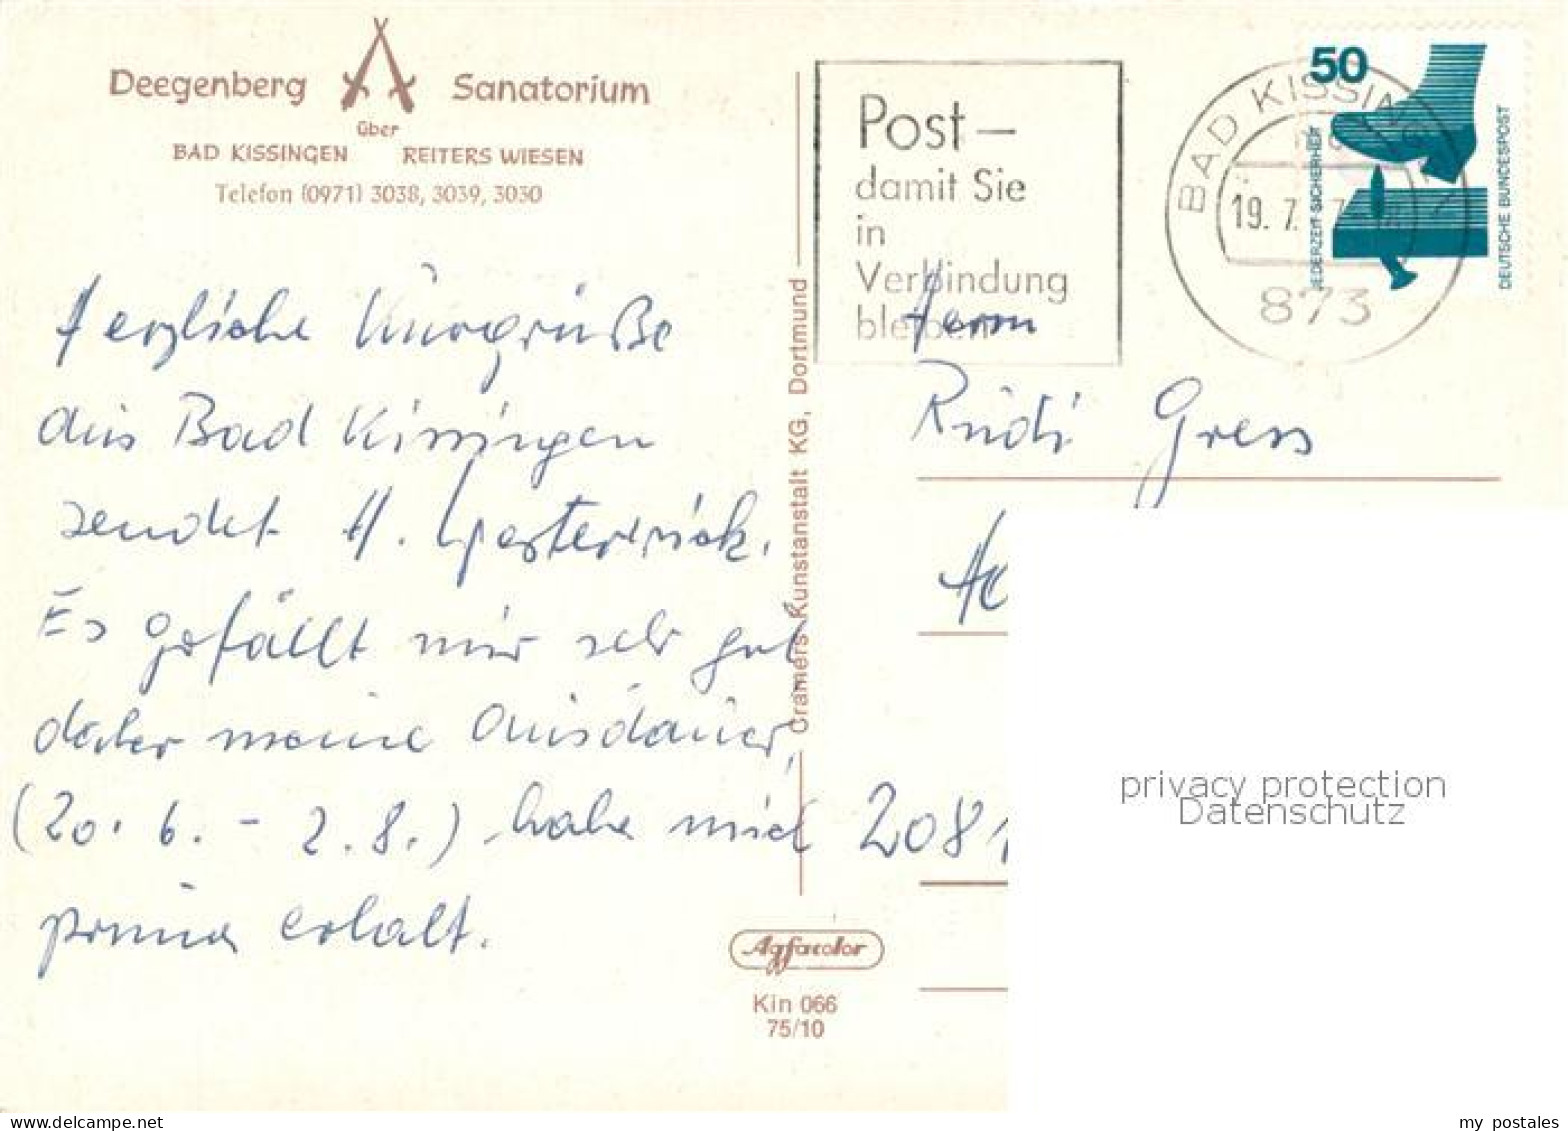 Deegenberg Sanatorium
über
BAD KISSINGEN REITERS WIESEN
Telefon (0971) 3038, 3039, 3030
Herzliche Kurgrüße
aus Bad Kissingen
sendet H.
Es gefällt mir sehr gut
daher meine Ausdauer,
(20. 6. - 2. 8.) habe mich
prima erholt.
Cramers Kunstanstalt KG, Dortmund
Agfacolor
Kin 066
75/10
Post –
damit Sie
in
Verbindung
bleiben
BAD KISSINGEN 1
19. 7.
873
50
JEDERZEIT SICHERHEIT
DEUTSCHE BUNDESPOST
Herrn
Rudi Gress
2081
privacy protection
Datenschutz
www.ansichtskartenversand.com
my postales